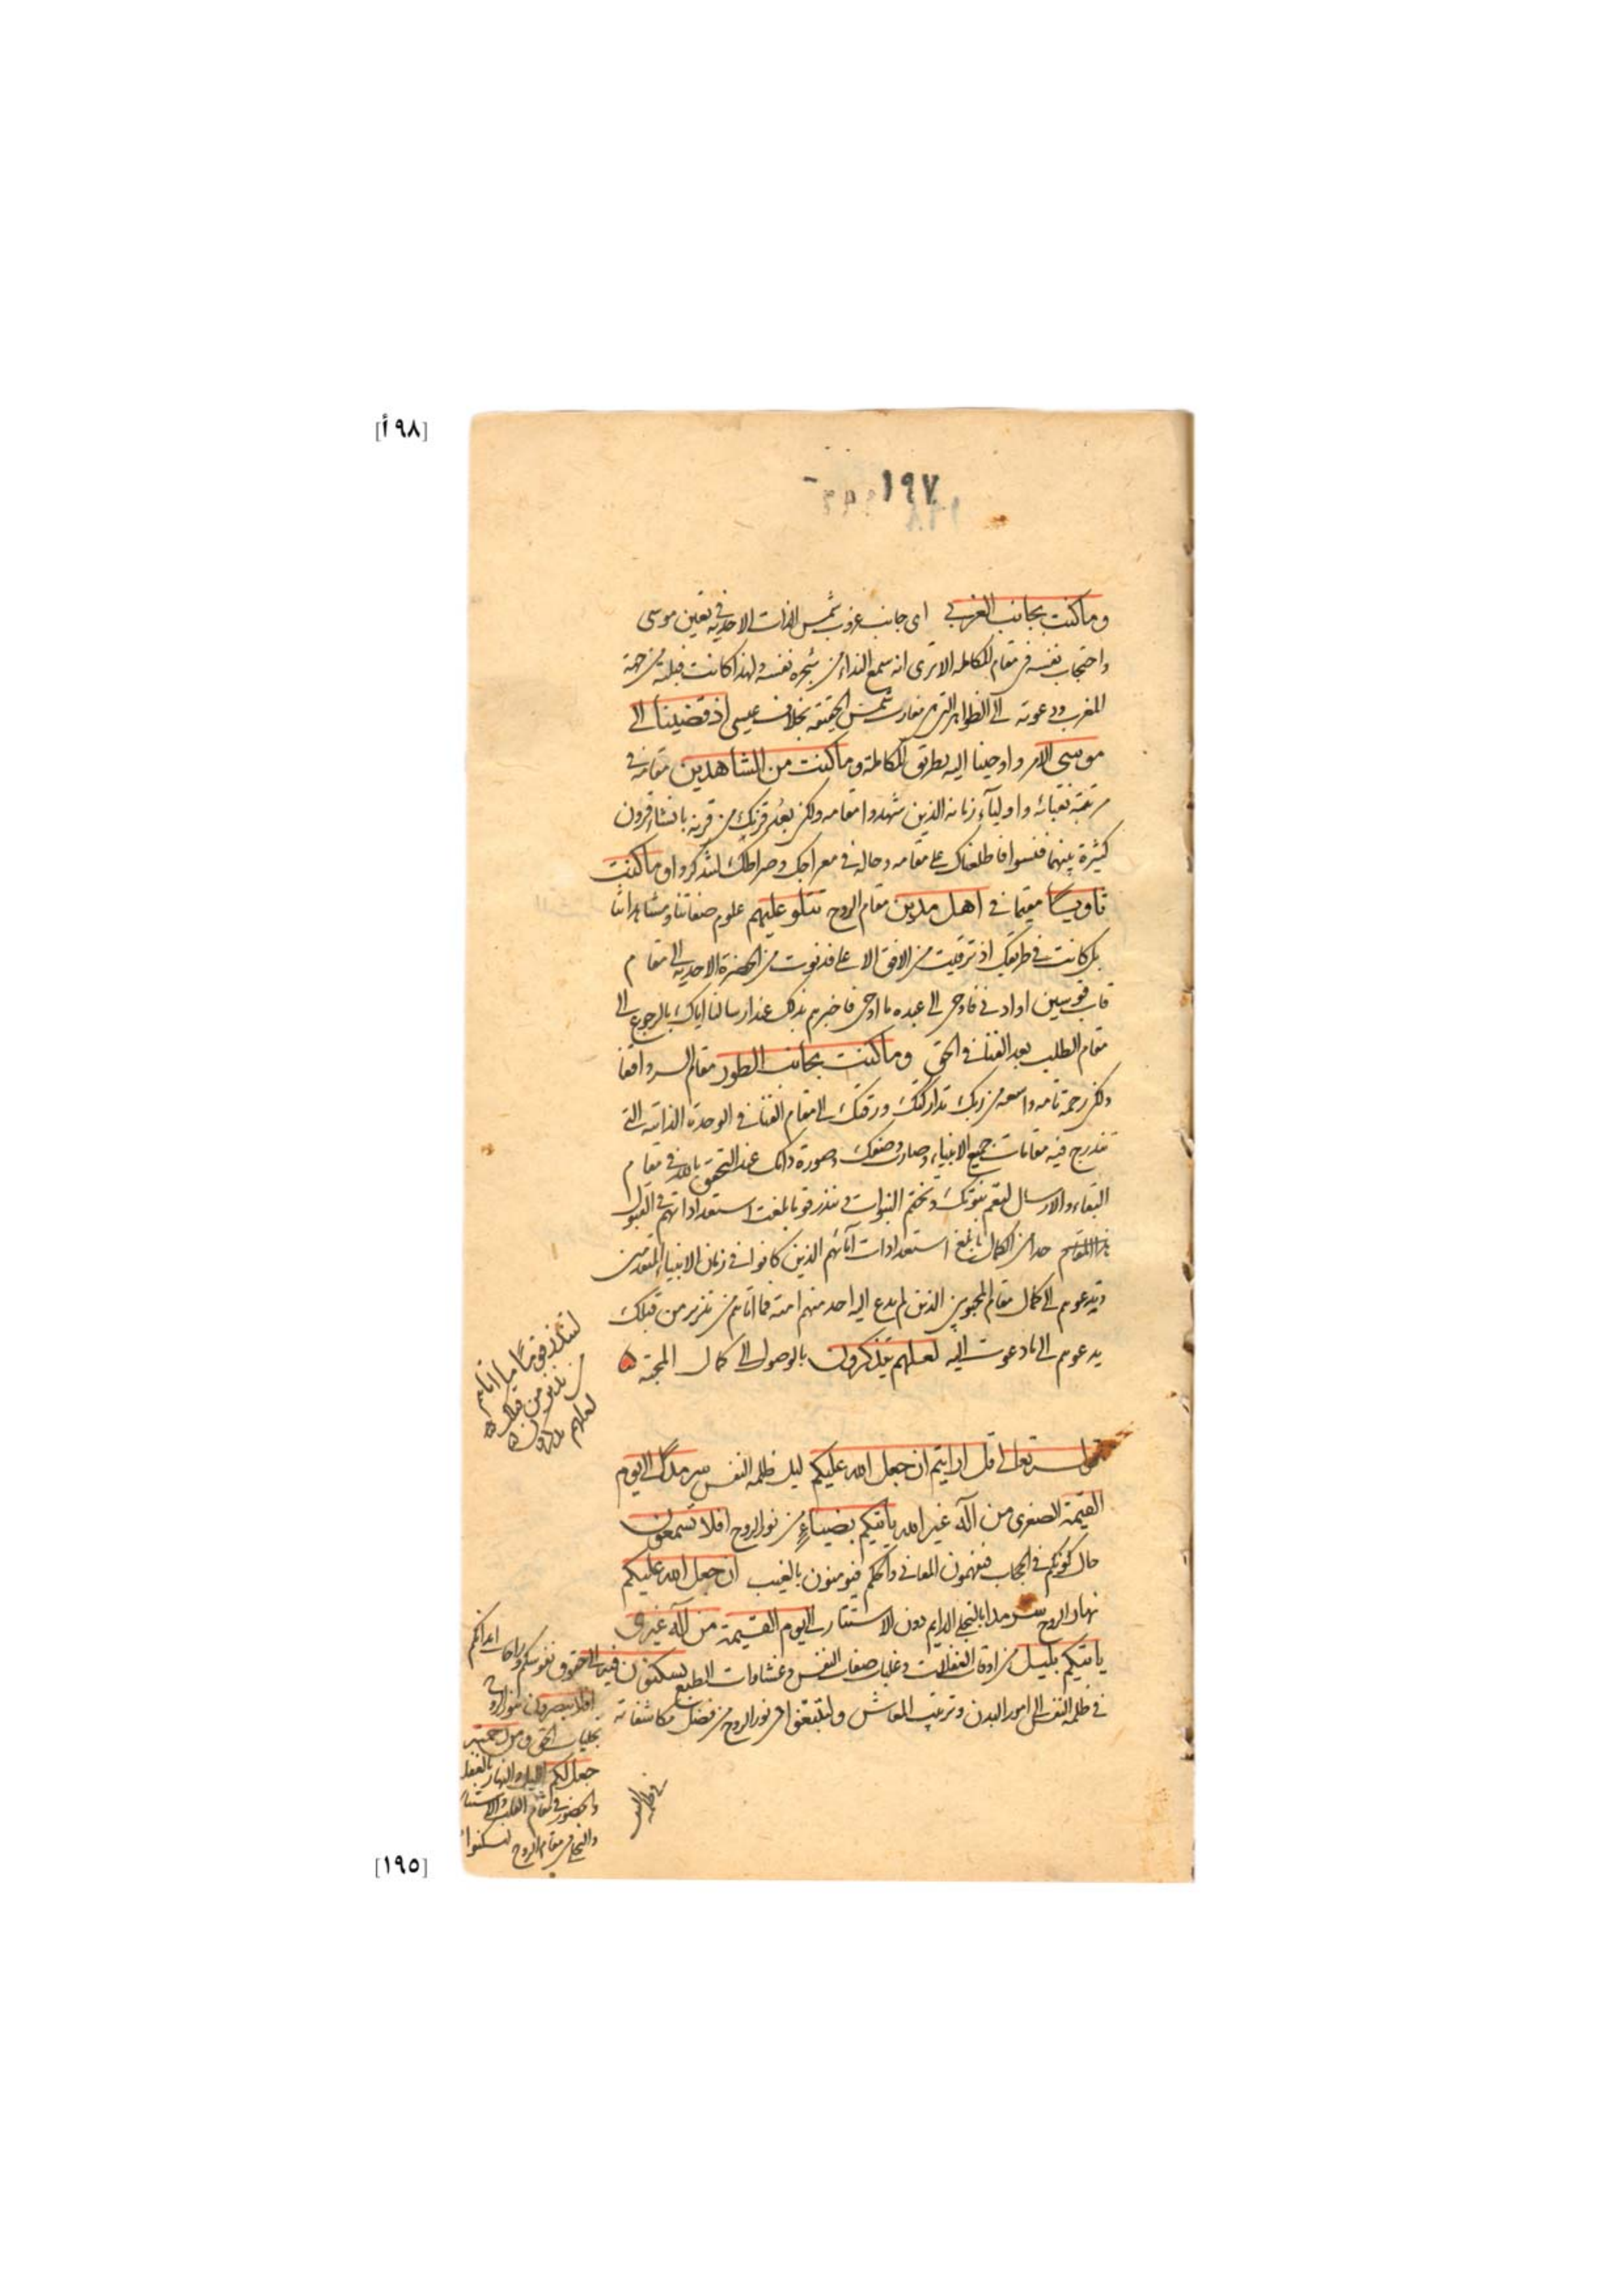 [٩٨أ]
١٩٧
وما كنت بجانب الغربي اى جانب غروب شمس الذات الاحدية في تعين موسى
واحتجاب نفسه في مقام المكالمه الا ترى انه سمع النداء من شجرة نفسه ولهذا كانت قبلته من جهة
المغرب ودعوته الى الظواهر التي هي مغارب شمس الحقيقه بخلاف عيسى اذ قضينا الى
موسى الامر واوحينا اليه بطريق المكالمة وما كنت من الشاهدين مقامه في
مرتبة نقبائه واولياء زمانه الذين شهدوا مقامه ولكن بعد قرنك من قرنه بانشاء قرون
كثيرة بينهما فنسوا فاطلعناك على مقامه وحاله في معراجك وصراطك ليتذكروا وما كنت
ثاويا مقيما في اهل مدين مقام الروح تتلو عليهم علوم صفاتنا ومشاهداتنا
بل كانت في طريقك اذ ترقيت من الافق الاعلى فدنوت من الحضرة الاحدية الى مقام
قاب قوسين او ادنى فاوحى الى عبده ما اوحى فاخبرهم بذلك عند ارسالنا اياك بالرجوع الى
مقام القلب بعد الفناء في الحق وما كنت بجانب الطور مقام السر واقفا
ولكن رحمة تامه واسعه من ربك تداركتك ورقتك الى مقام الفناء في الوحدة الذاتيه التي
تندرج فيه مقامات جميع الانبياء وصارت وصفك وصورة ذاتك عند التحقق بالله في مقام
البقاء والارسال لتعم نبوتك وتختم النبوات وتنذر قوما بلغت استعداداتهم في القبول
حدا من الكمال ما بلغ استعدادات آبائهم الذين كانوا في زمان الانبياء المتقدمين
وتدعوهم الى كمال مقام المحبوبين الذين لم يدع اليه احد منهم امته فما اتاهم من نذير من قبلك
يدعوهم الى ما دعوت اليه لعلهم يتذكرون بالوصول الى كمال المحبة
لتنذر قوما ما اتاهم
من نذير من قبلك
لعلهم يتذكرون
قوله تعالى قل ارايتم ان جعل الله عليكم ليل ظلمه النفس سرمدا الى يوم
القيمة الصغرى من اله غير الله ياتيكم بضياء من نور الروح افلا تسمعون
حال كونكم في الحجاب فتفهمون المعاني والحكم فتؤمنون بالغيب ان جعل الله عليكم
نهار الروح سرمدا بالتجلي الدايم دون الاستتار الى يوم القيمة من اله غيره
ياتيكم بليل من اوقات الغفلات وغلبات صفات النفس وغشاوات الطبع تسكنون فيه الى حقوق نفوسكم وراحات ابدانكم
افلا تبصرون بنور الروح
تجليات الحق ومن رحمته
جعل لكم الليل والنهار بالغفلة
والحضور في مقام القلب والاستتار
والتجلي في مقام الروح لتسكنوا
في ظلمة النفس الى امور البدن وترتيب المعاش ولتبتغوا من نور الروح من فضل مكاشفاته
في ظلمة النفس
[١٩٥]